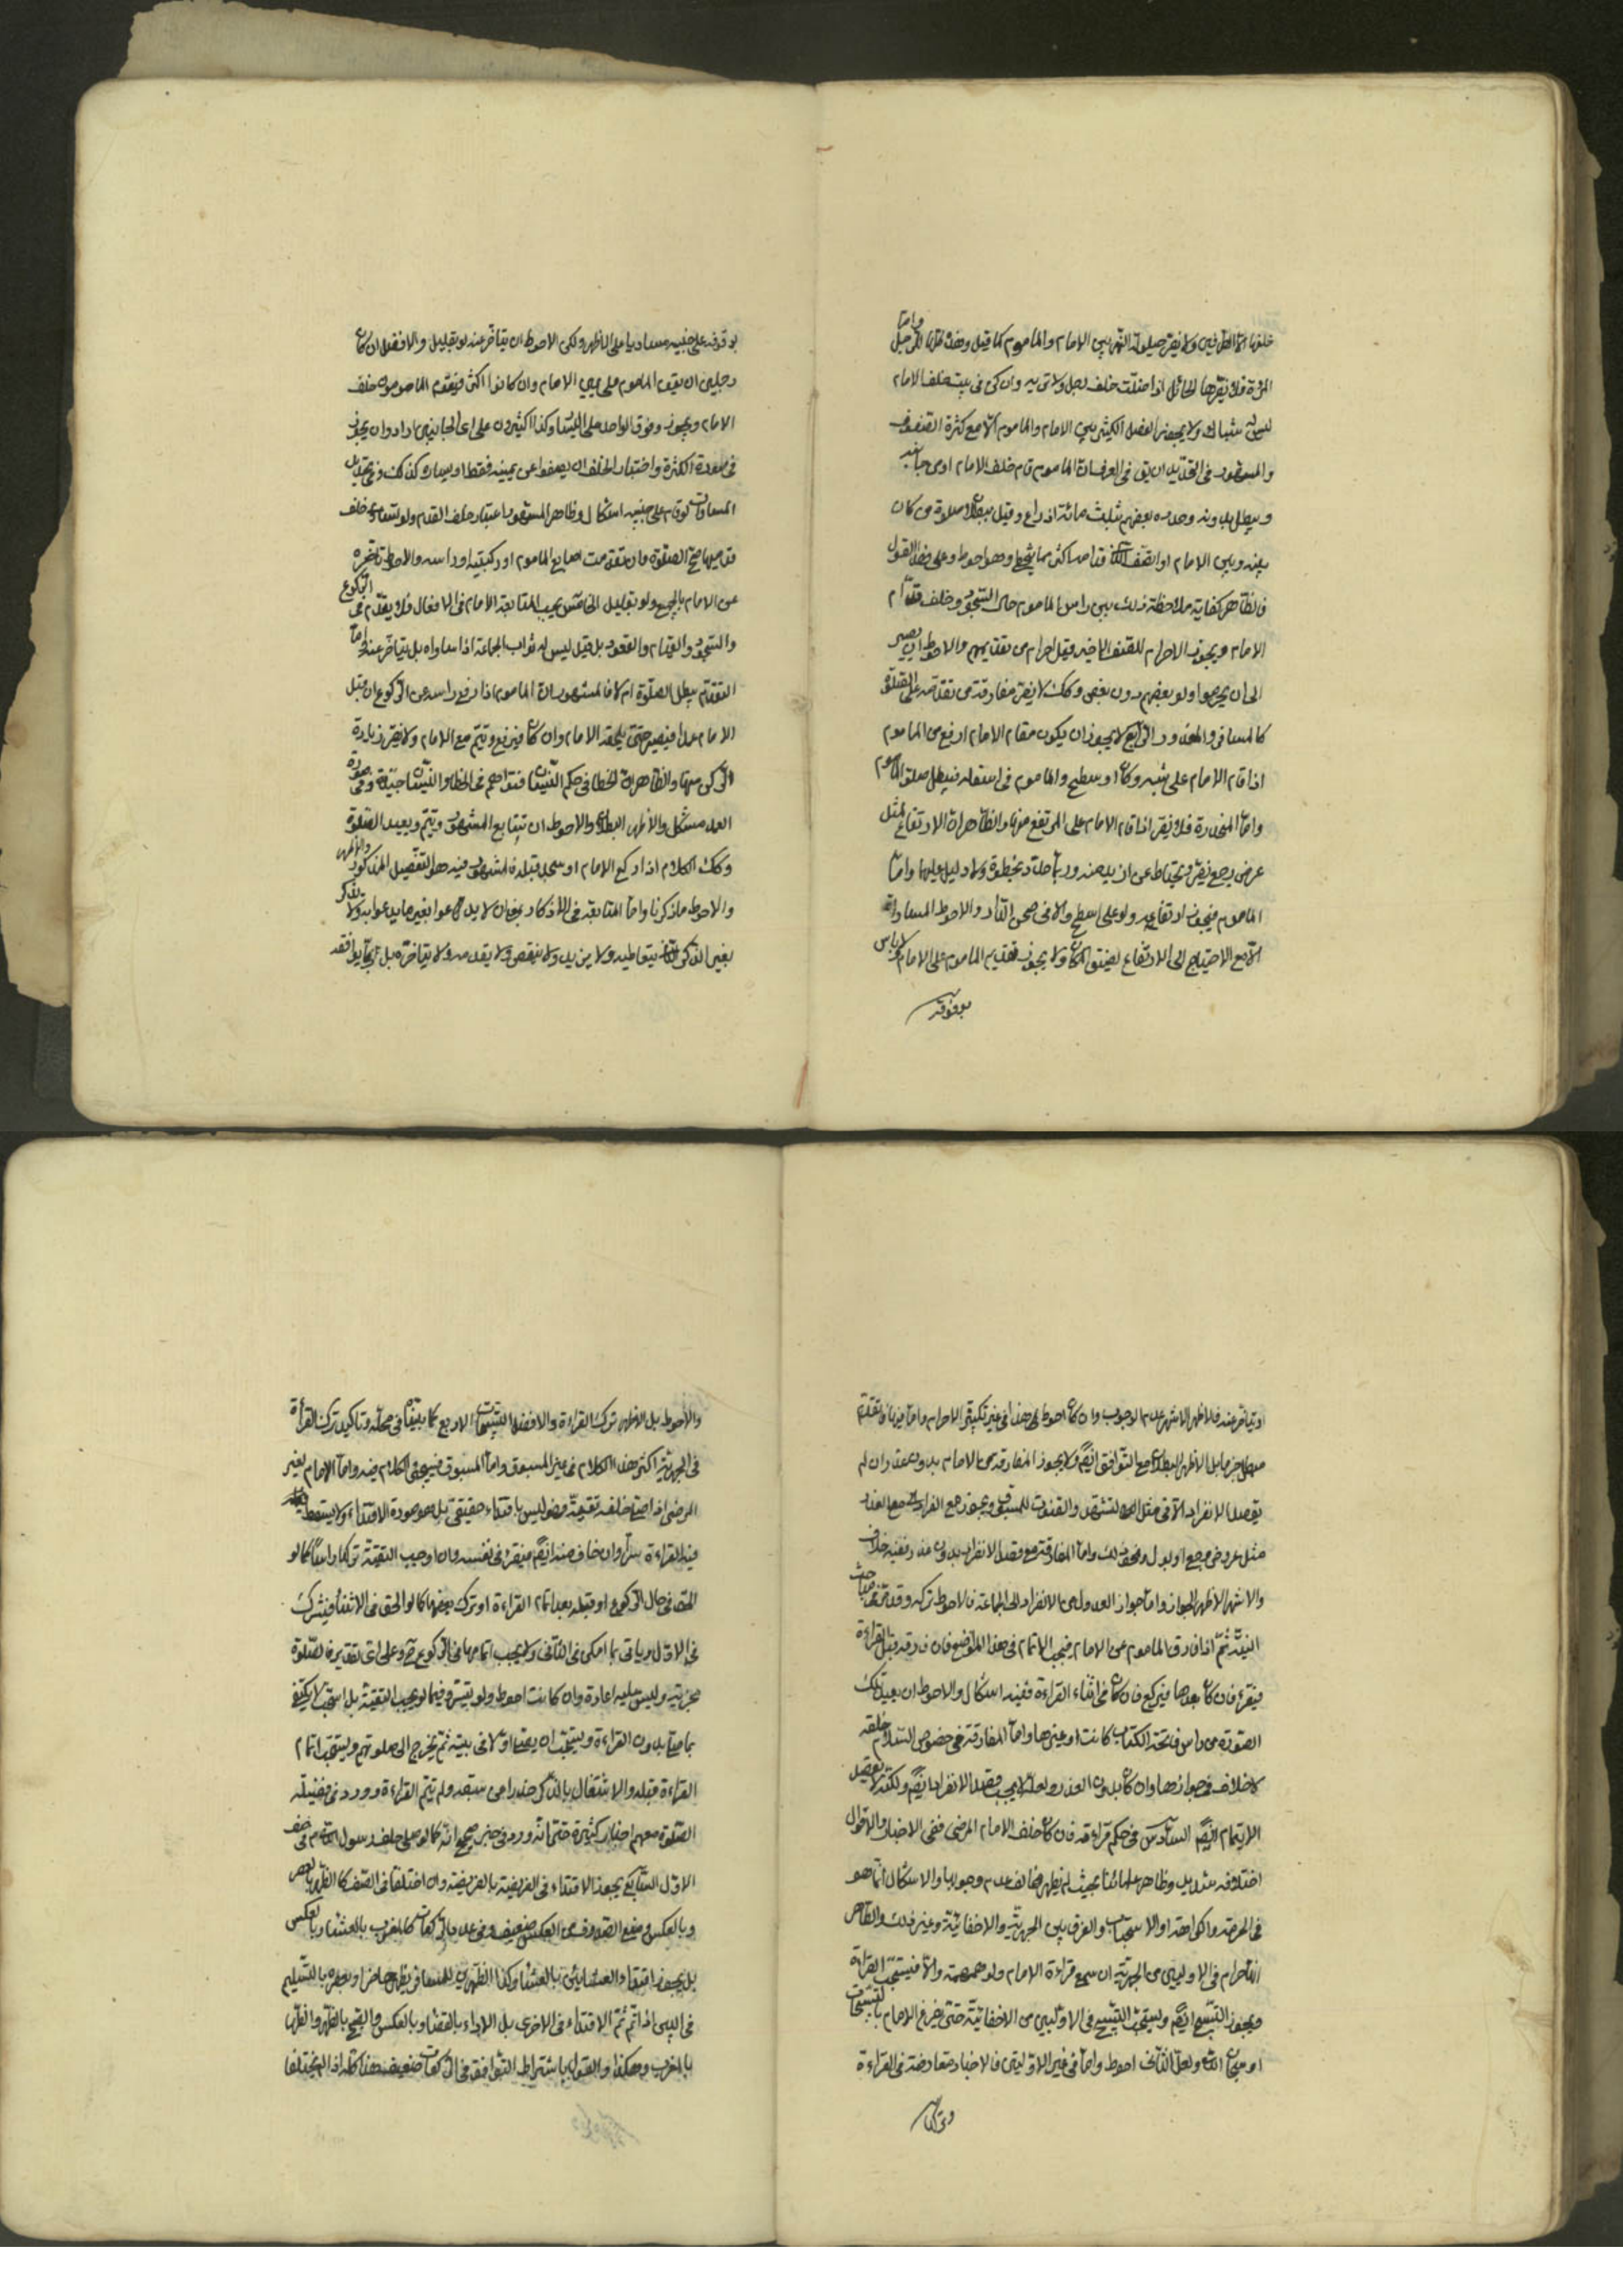 خلفها من الطرفين ولا يضر حيلولة النهر بين الامام والماموم كما قيل وهذا كله في الرجل واما
المرأة فلا يضرها الحائل اذا صلت خلف رجل ولا تريه وان كن في بيت خلف الامام
ليس له شباك ولا يجوز الفصل الكثير بين الامام والماموم الا مع كثرة الصفوف
والمشهور في التحديد ان يق في العرف ان الماموم قام خلف الامام او من جانبه
ويبطل بدونه وحدده بعضهم بثلث مائة اذراع وقيل ببطلان صلوة من كان
بينه وبين الامام او الصف قدامه اكثر مما يتخطى وهو احوط وعلى هذا القول
فالظاهر كفاية ملاحظة ذلك بين راس الماموم حال السجود وخلف قدام
الامام ويجوز الاحرام للصف الاخير قبل احرام من تقديمهم والاحوط ان يصبر
الى ان يحرموا ولو بعضهم دون بعض وكك لا يضر مفارقة من تقدمه على الصلوة
كالمسافر والمعذور الرابع لا يجوز ان يكون مقام الامام ارفع من الماموم
اذا قام الامام على شبه دكان او سطح والماموم في اسفله فيبطل صلوة الماموم
واما المنحدرة فلا يضر اذا قام الامام على المرتفع منها والظاهر ان الارتفاع بمثل
عرض اصبع يضر ويحتاط عن ازيد منه وربما حدد بخطوة ولا دليل عليها واما
الماموم فيجوز ارتفاعه ولو على سطح والامام في صحن الدار والاحوط المساوات
الا مع الاحتياج الى الارتفاع لضيق المكان ولا يجوز تقديم الماموم على الامام ولا باس
بوقوفه
بوقوفه على جنبيه مساويا على الاظهر ولكن الاحوط ان يتاخر عنه ولو بقليل والافضل ان كان
رجلين ان يقف الماموم على يمين الامام وان كانوا اكثر فيقدم المامومون خلف
الامام ويجوز وقوف الواحد على اليسار وكذا اكثيرون على اي الجانبين ارادوا وان يجوز
في صورة الكثرة واختيار الخلف ان يصفوا عن يمينه فقط او يساره كذلك وفي تحديد
المساوات لو قام على جنبيه اشكال وظاهر المشهور اعتبار خلف القدم ولو تساوى خلف
قدميهما صح الصلوة وان تقدمت اصابع الماموم او ركبتيه او راسه والاحوط تاخره
عن الامام بالجميع ولو بقليل الخامس يجب المتابعة الامام في الافعال فلا يقدم في الركوع
والسجود والقيام والقعود بل قيل ليس له ثواب الجماعة اذا ساواه بل يتاخر عنه واما
التقدم يبطل الصلوة ام لا فالمشهور ان الماموم اذا رفع راسه عن الركوع ان قبل
الامام عمدا فيصير حتى يلحقه الامام وان كان فيرفع ويتم مع الامام ولا يضر زيادة
الركن سهوا والظاهر ان الخطا في حكم النسيان
العمد مشكل والاظهر البطلان والاحوط ان يتابع المشهور ويتم ويعيد الصلوة
وكك الكلام اذا ركع الامام او سجد قبله فالمشهور فيه هو التفصيل المذكور والاظهر
والاحوط ما ذكرنا واما المتابعة في الاذكار بمعنى ان لا يدعوا بغير ما يدعوا به ولا يذكر
بغير الذكر الذي يتعاطيه ولا يزيد ولا ينقص ولا يقدمه ولا يتاخره بل انما يوافقه
او يتاخر عنه فالاظهر الاشهر عدم الوجوب وان كان احوط هذا في غير تكبيرة الاحرام واما فيها فالتقدم
مبطل جزما بل الاظهر البطلان مع التوافق ايضا ولا يجوز المفارقة من الامام بدون عذر وان لم
يقصد الانفراد الا في مثل التشهد والقنوت للمسبوق ويجوز مع الفراد مع العذر
مثل عروض وجع او بول ونحو ذلك واما المفارقة مع قصد الانفراد بدون عذر ففيه خلاف
والاشهر الاظهر الجواز واما جواز العدول من الانفراد الى الجماعة فالاحوط تركه وقد مر في مباحث
النية ثم اذا فارق الماموم عن الامام فيجب الاتمام في هذا الموضع فان فارقه قبل القراءة
فيقرء وان كان بعدها فيركع وان كان في اثناء القراءة ففيه اشكال والاحوط ان يعيد تلك
الصورة من راس فاتحة الكتاب كانت او غيرها واما المفارقة في خصوص السلام خلفه
لا خلاف في جوازها وان كان بدون العذر ولعله لا يجب قصد الانفراد ايضا ولكنه لا يحصل
الايتمام ايضا السادس في حكم قراءته فان كان خلف الامام المرضي ففي الاخبار والاقوال
اختلاف شديد وظاهر علمائنا بحيث لم يظهر مخالف عدم وجوبها والاشكال انما هو
في الحرمة والكراهة او الاستحباب والفرق بين الجهرية والاخفاتية وغير ذلك والظاهر
التحرام في الاوليين من الجهرية ان سمع قراءة الامام ولو همهمة والا فيستحب القراءة
ويجوز التسبيح ايضا ويستحب التسبيح في الاوليين من الاخفاتية حتى يفرغ الامام بالتسبيحات
او سبحان الله ولعل الثاني احوط واما في غير الاوليين فالاخبار متعارضة في القراءة
والاحوط بل الاظهر ترك القراءة والافضل التسبيحات الاربع كما بيناه في محله وتاكيد ترك القراءة
في الجهرية اكثر هذا الكلام في غير المسبوق واما المسبوق فسيجيء الكلام فيه واما الامام لغير
المرضي اذا صلى خلفه تقية فهو ليس باقتداء حقيقي بل هو صورة الاقتداء ولا يسقط
فيه القراءة سرا وان خاف منه ايضا فيقرء في نفسه وان اوجب التقية تركها راسا كما لو
التقى في حال الركوع او قبله بعد اتمام القراءة او ترك بعضها كما لو الحق في الاثناء فيترك
في الاول وياتي بما امكن في الثاني ولا يجب اتمامها في الركوع ح وعلى اي تقدير فالصلوة
مجزية وليس عليه اعادة وان كانت احوط ولو تيسر وفيما لو يجب التقية بل استحب لا يكتفي
بما صلى بدون القراءة ويستحب ان يصلي اولا في بيته ثم يخرج الى صلوتهم ويستحب اتمام
القراءة قبله والاشتغال بالذكر حذرا من سبقه ولم يتم القراءة وورد في فضيلة
الصلوة معهم اخبار كثيرة حتى انه ورد في خبر صحيح انه كان كمن صلى خلف رسول الله في صف
الاول السابع يجوز الاقتداء في الفريضة بالفريضة وان اختلفا في الصنف كالظهر بالعصر
وبالعكس ومنع الصدوق من العكس ضعيف وفي عدد الركعات كالمغرب بالعشاء وبالعكس
بل يجوز اقتداء العشائين بالعشاء وكذا الظهرين للمسافر بظهر حاضر او بعصره بالتسليم
في البين اذا تم ثم الاقتداء في الاخرى بل الاداء بالقضاء وبالعكس والصبح بالظهر والظهر
بالمغرب وهكذا والقول باشتراط التوافق في الركعات ضعيف هذا كله اذا لم يختلفا